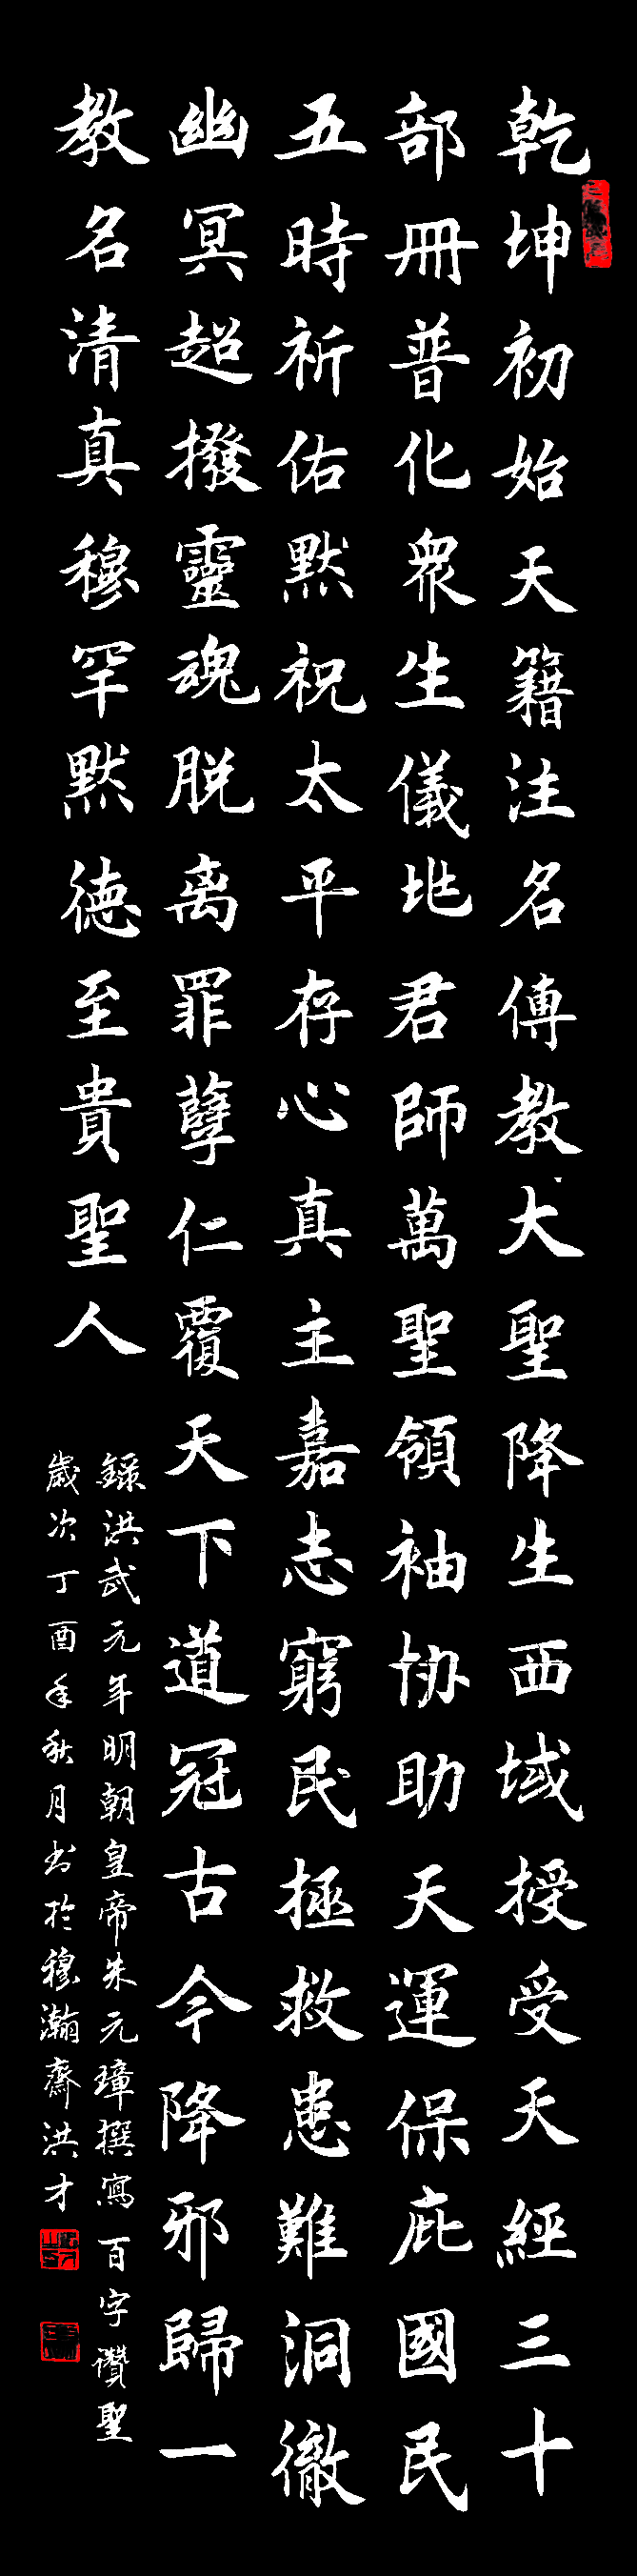 乾坤初始天籍注名傳教大聖降生西域授受天經三十
部冊普化衆生儀地君師萬聖領袖协助天運保庇國民
五時祈佑默祝太平存心真主嘉志窮民拯救患難洞徹
幽冥超撥靈魂脱离罪孽仁覆天下道冠古今降邪歸一
教名清真穆罕默德至貴聖人
錄洪武元年明朝皇帝朱元璋撰寫百字讚聖
歲次丁酉年秋月书於穆瀚齋洪才